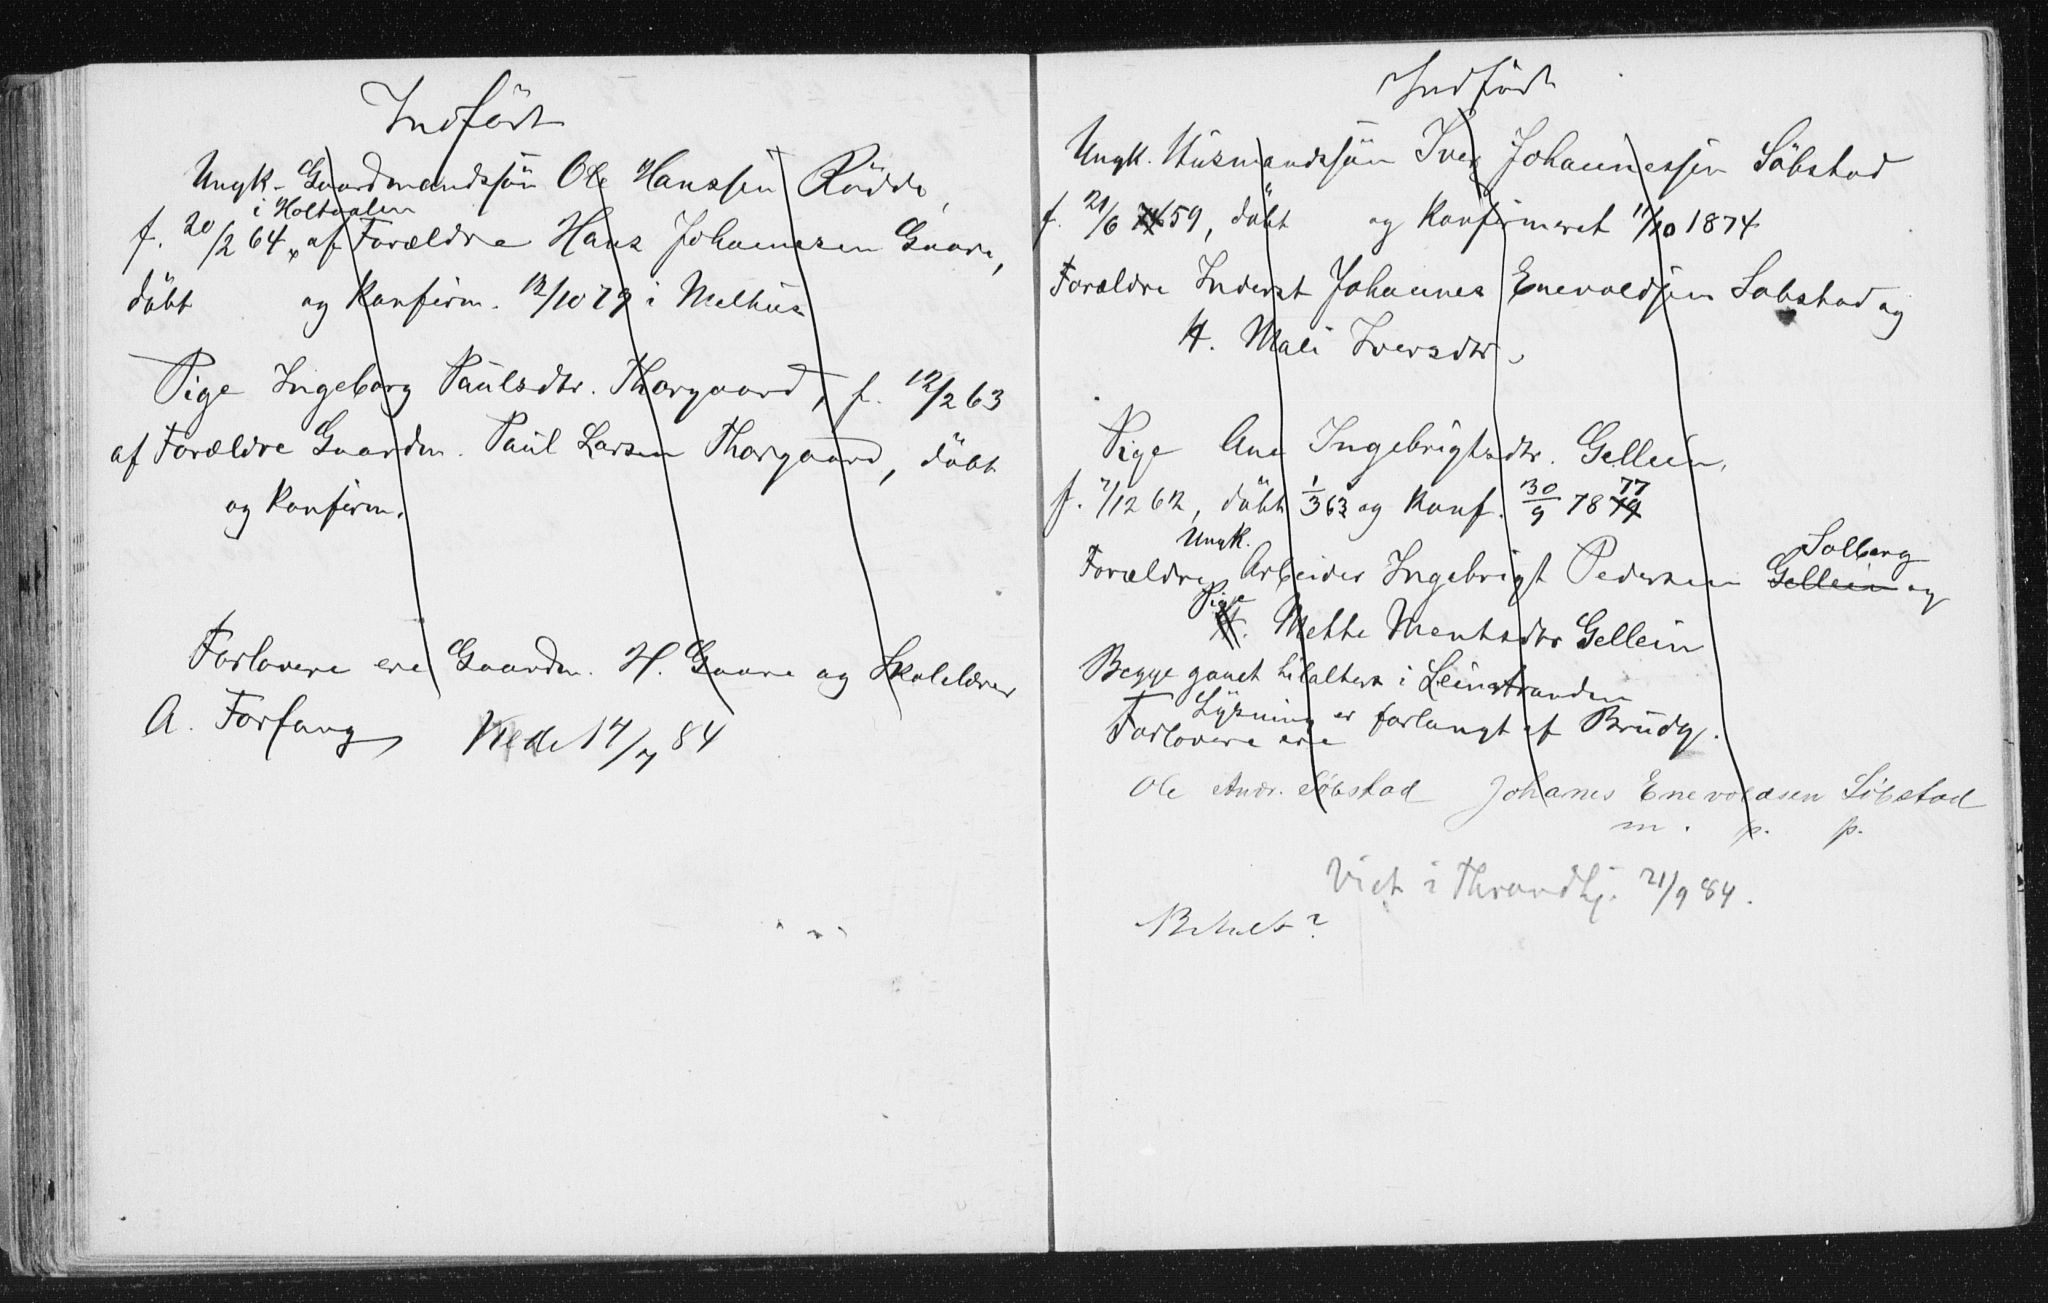 Indført
Ungk. Gaardmandssøn Ole Hanssen Rødde,
i Holtaalen
f. 20/2 64, af Forældre Hans Johannesen Gaare,
døbt og konfirm. 12/10 79 i Melhus
Pige Ingeborg Paulsdtr. Thorgaard, f. 12/2 63
af Forældre Gaardm. Paul Larsen Thorgaard, døbt
og konfirm.
Forlovere ere Gaardm. H. Gaare og Skolelærer
A. Forfang 17/7 84
Indført
Ungk. Husmandssøn Iver Johannessen Søbstad
f. 21/6 59, døbt og konfirmeret 11/10 1874
Forældre Inderst Johannes Enevoldsen Søbstad og
H. Mali Iversdtr.
Pige Ane Ingebrigtsdtr. Gellein,
77
f. 7/12 62, døbt 1/3 63 og konf. 30/9 18 79
Ungk. Solberg
Forældre Arbeider Ingebrigt Pedersen Gellein og
Pige
H. Mette Mentsdtr Gellein
Begge gauet tilalters i Leinstranden
Lysning er forlangt af Brudg.
Forlovere ere
Ole Andr. Søbstad Johanes Enevoldsen Søbstad
m. p. p.
Viet i Throndhj. 21/9 84.